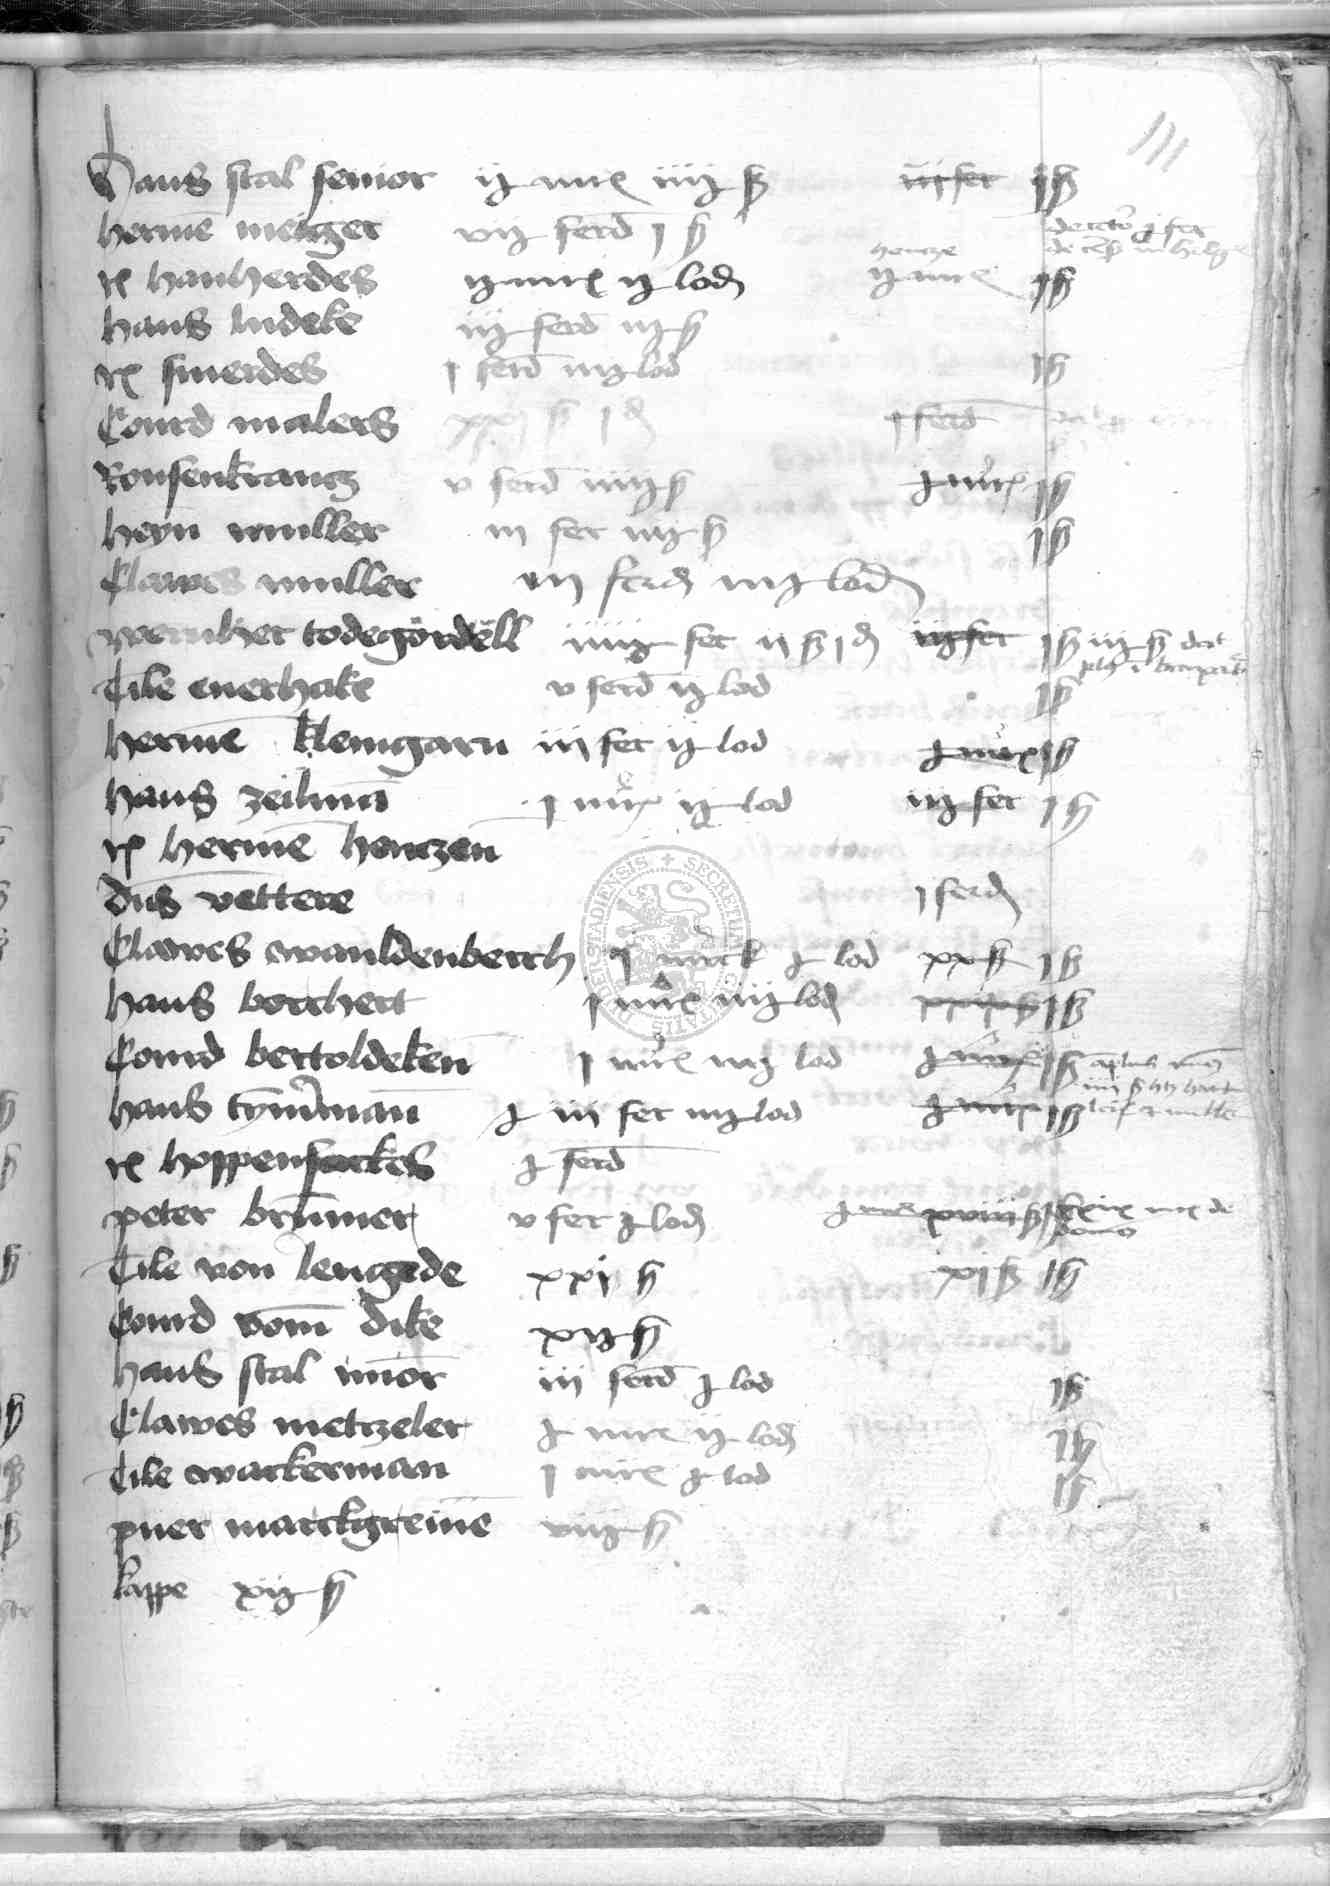 111
Hans stal senior ij mrc iiij ß iij fer j ß
hermē meiger vij ferd j ß
rꝫ hanherdes ij mrc ij lod hentze ij mrc j ß
hans ludeke iij ferd iij ß
rꝫ smerdes j ferd iij lod j ß
Conrd malers xxj ß j d j ferd
Ronsenkrantz v ferd iiij ß j mrc j ß
heyn muller iij fer iij ß j ß
Clawes muller iij ferd iij lod
wernher todegördëll iiij fer ij ß j d iij fer j ß iij ß
Tile euerhake v ferd ij lod j ß
hermē klemgarn iij fer ij lod j mrc j ß
hans zeilmā j mrc ij lod iij fer j ß
rꝫ hermē hentzen
dūs vettere j ferd
Clawes wauldenberch j marck j lod xx ß j ß
hans borchert j mrc iiij lod j ß
Conrd bertoldeken j mrc iij lod j mrc j ß
hans tym̄erman j iij fer iij lod j mrc j ß
rꝫ hoppensackes j ferd
peter brūmer v fer j lod xviij ß
Tile von lengede xxj ß xj ß j ß
Conrd vom̄ dike xij ß
hans stal iūior iij ferd j lod j ß
Clawes metzeler j mrc ij lod j ß
Tile wackerman j mrc j lod j ß
puer marckgreuīe viij ß
kappe xij ß
SECRETUM CIVITATIS DUDERSTADIENSIS